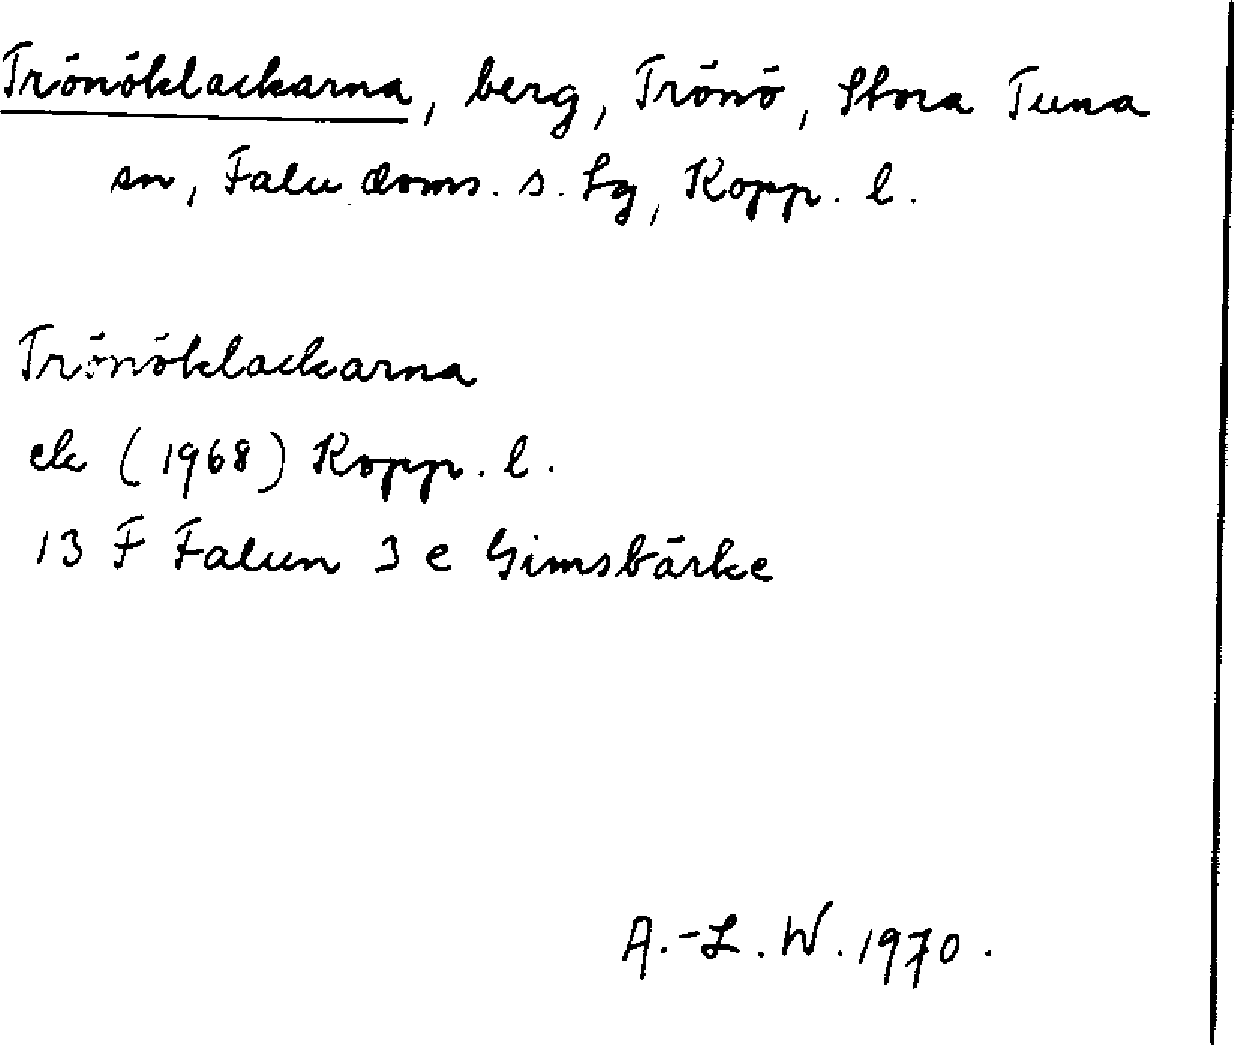 Trönöklackarna, berg, Trönö, Stora Tuna
sn, Falu doms. s. tg, Kopp. l.
Trönöklackarna
ek (1968) Kopp. l.
13 F Falun 3 e Gimsbärke
A.-L. W. 1970.